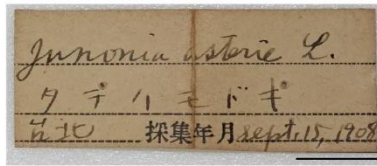 Junonia asterie L.
タテハモドキ
台北 採集年月 sept. 15, 1908